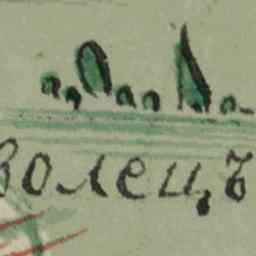 волецъ